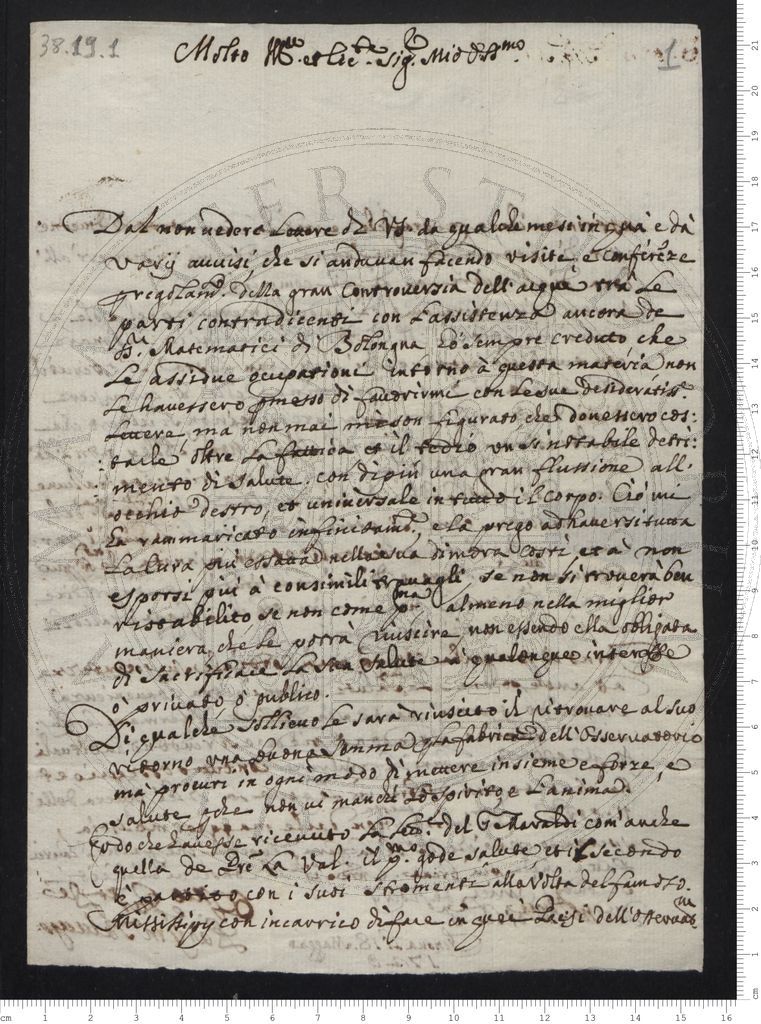 38.19.1
1
Molto Ill.re et Ecc.te Sig.r Mio Oss.mo
Dal non vedere lettere di VS da qualche mesi in quà e dà
varij avvisi, che si andavan facendo visite e conferēze
p regolam.to della gran Controversia dell'acque trà le
parti contradicenti con l'assistenza ancora de
SS.ri Matematici di Bolongna hò sempre creduto che
le assidue ocupationi intorno à questa materia non
le havessero pmesso di favorirmi con le sue desideratiss.e
lettere, ma non mai mi son figurato che dovessero cos:
tarle oltre la fatica et il tedio un sì notabile detri:
mento di salute con di più una gran flussione all'
occhio destro, et universale in tutto il corpo. Ciò mi
hà rammaricato infinitam.te, e la prego ad haversi tutta
la cura più esatta nella sua dimora costì et à non
esporsi più à consimili travagli, se non si troverà ben
ristabilito se non come p.ma almeno nella miglior
maniera, che le potrà riuscire, non essendo ella obligata
di sacrificare la sua salute à qualonque interesse
ò privato, ò publico.
Di qualche sollievo le sarà riuscito il ritrovare al suo
ritorno una buona somma p la fabrica dell'Osservatorio
mà procuri in ogni modo di mettere insieme e forze, e
salute, p che non vi manchi lo spirito, e l'anima.
Godo che havesse ricevuto la lett.ra del S.r Maraldi com'anche
quella de Pre La Val. il p.mo gode salute, et il secondo
è partito con i suoi stromenti alla volta del famoso
Missisipy con incarrico di fare in quei Paesi dell'osservat.ni